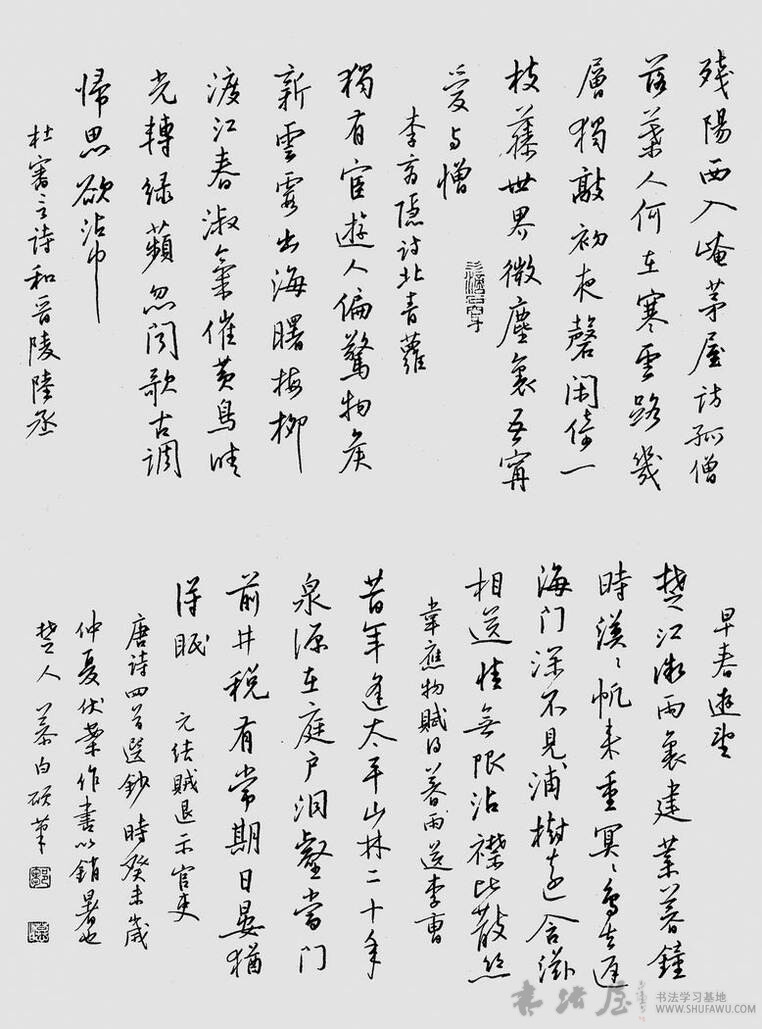 殘陽西入崦茅屋訪孤僧
落葉人何在寒雲路幾
層獨敲初夜磬閑倚一
枝藤世界微塵裏吾寧
愛与憎
李商隱詩北青蘿
獨有宦遊人偏驚物候
新雲霞出海曙梅柳
渡江春淑氣催黃鳥晴
光轉綠蘋忽闻歌古調
歸思欲沾巾
杜審言詩和晉陵陸丞
早春遊望
楚江微雨裏建業暮鐘
時漠〻帆来重冥〻鳥去遲
海门深不見浦樹遠含滋
相送情無限沾襟比散絲
韋應物賦得暮雨送李曹
昔年逢太平山林二十年
泉源在庭户洞壑當门
前井税有常期日晏猶
得眠 元结賊退示官吏
唐诗四首選鈔 時癸未歲
仲夏伏案作書以銷暑也
楚人慕白硕筆
书法屋
书法学习基地
WWW.SHUFAWU.COM